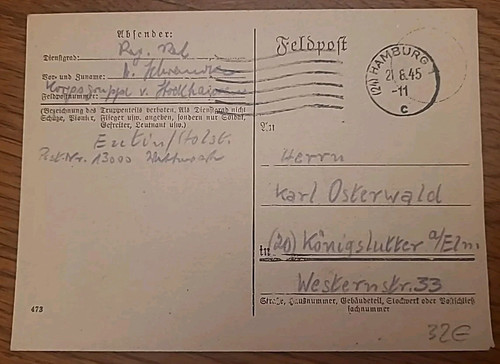 Absender:
Dienstgrad: Reg. Rat
Vor- und Zuname:
Korpsgruppe v. Stockhausen
Feldpostnummer:
(Bezeichnung des Truppenteils verboten. Als Dienstgrad nicht
Schütze, Pionier, Flieger usw. angeben, sondern nur Soldat,
Gefreiter, Leutnant usw.)
Eutin/Holst.
13000
473
Feldpost
(24) HAMBURG 1
21.8.45
-11
c
An
Herrn
Karl Osterwald
in (20) Königslutter a/Elm
Westernstr. 33
Straße, Hausnummer, Gebäudeteil, Stockwerk oder Postschließ-
fachnummer
32€